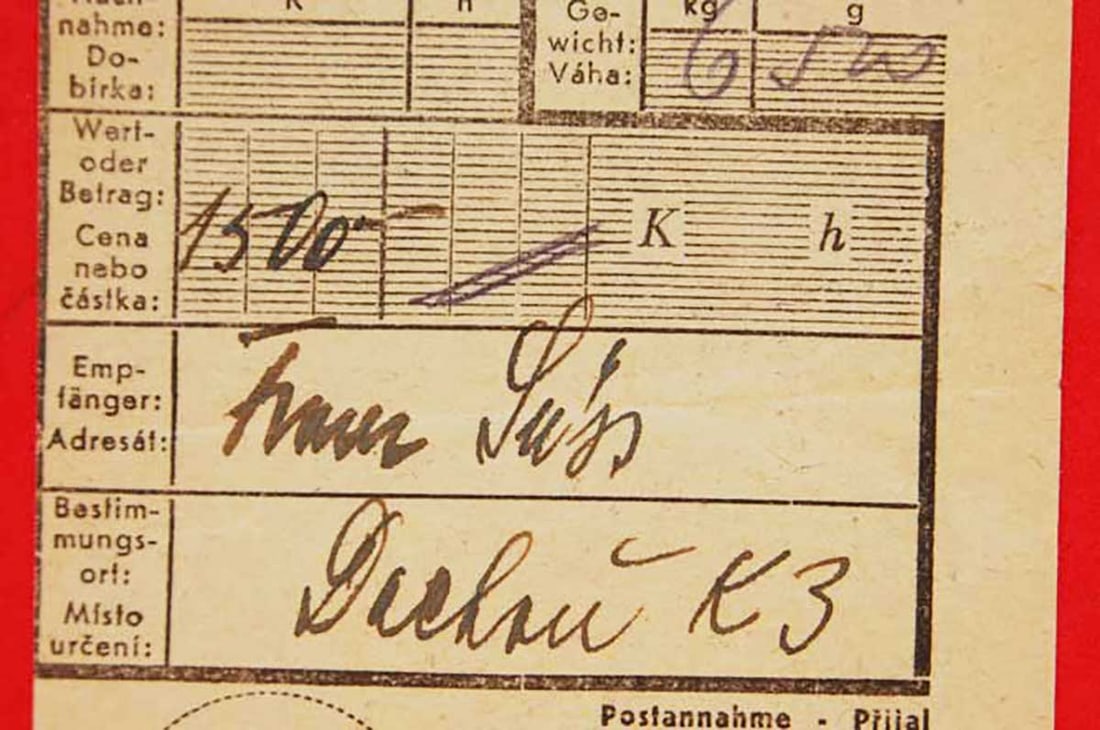 K h
nahme:
Do-
birka:
Ge-
wicht:
Váha:
kg g
6 500
Wert-
oder
Betrag:
Cena
nebo
částka:
1500 –
K h
Emp-
fänger:
Adresát:
Franz Süss
Bestim-
mungs-
ort:
Místo
určení:
Dachau K 3
Postannahme - Přijal